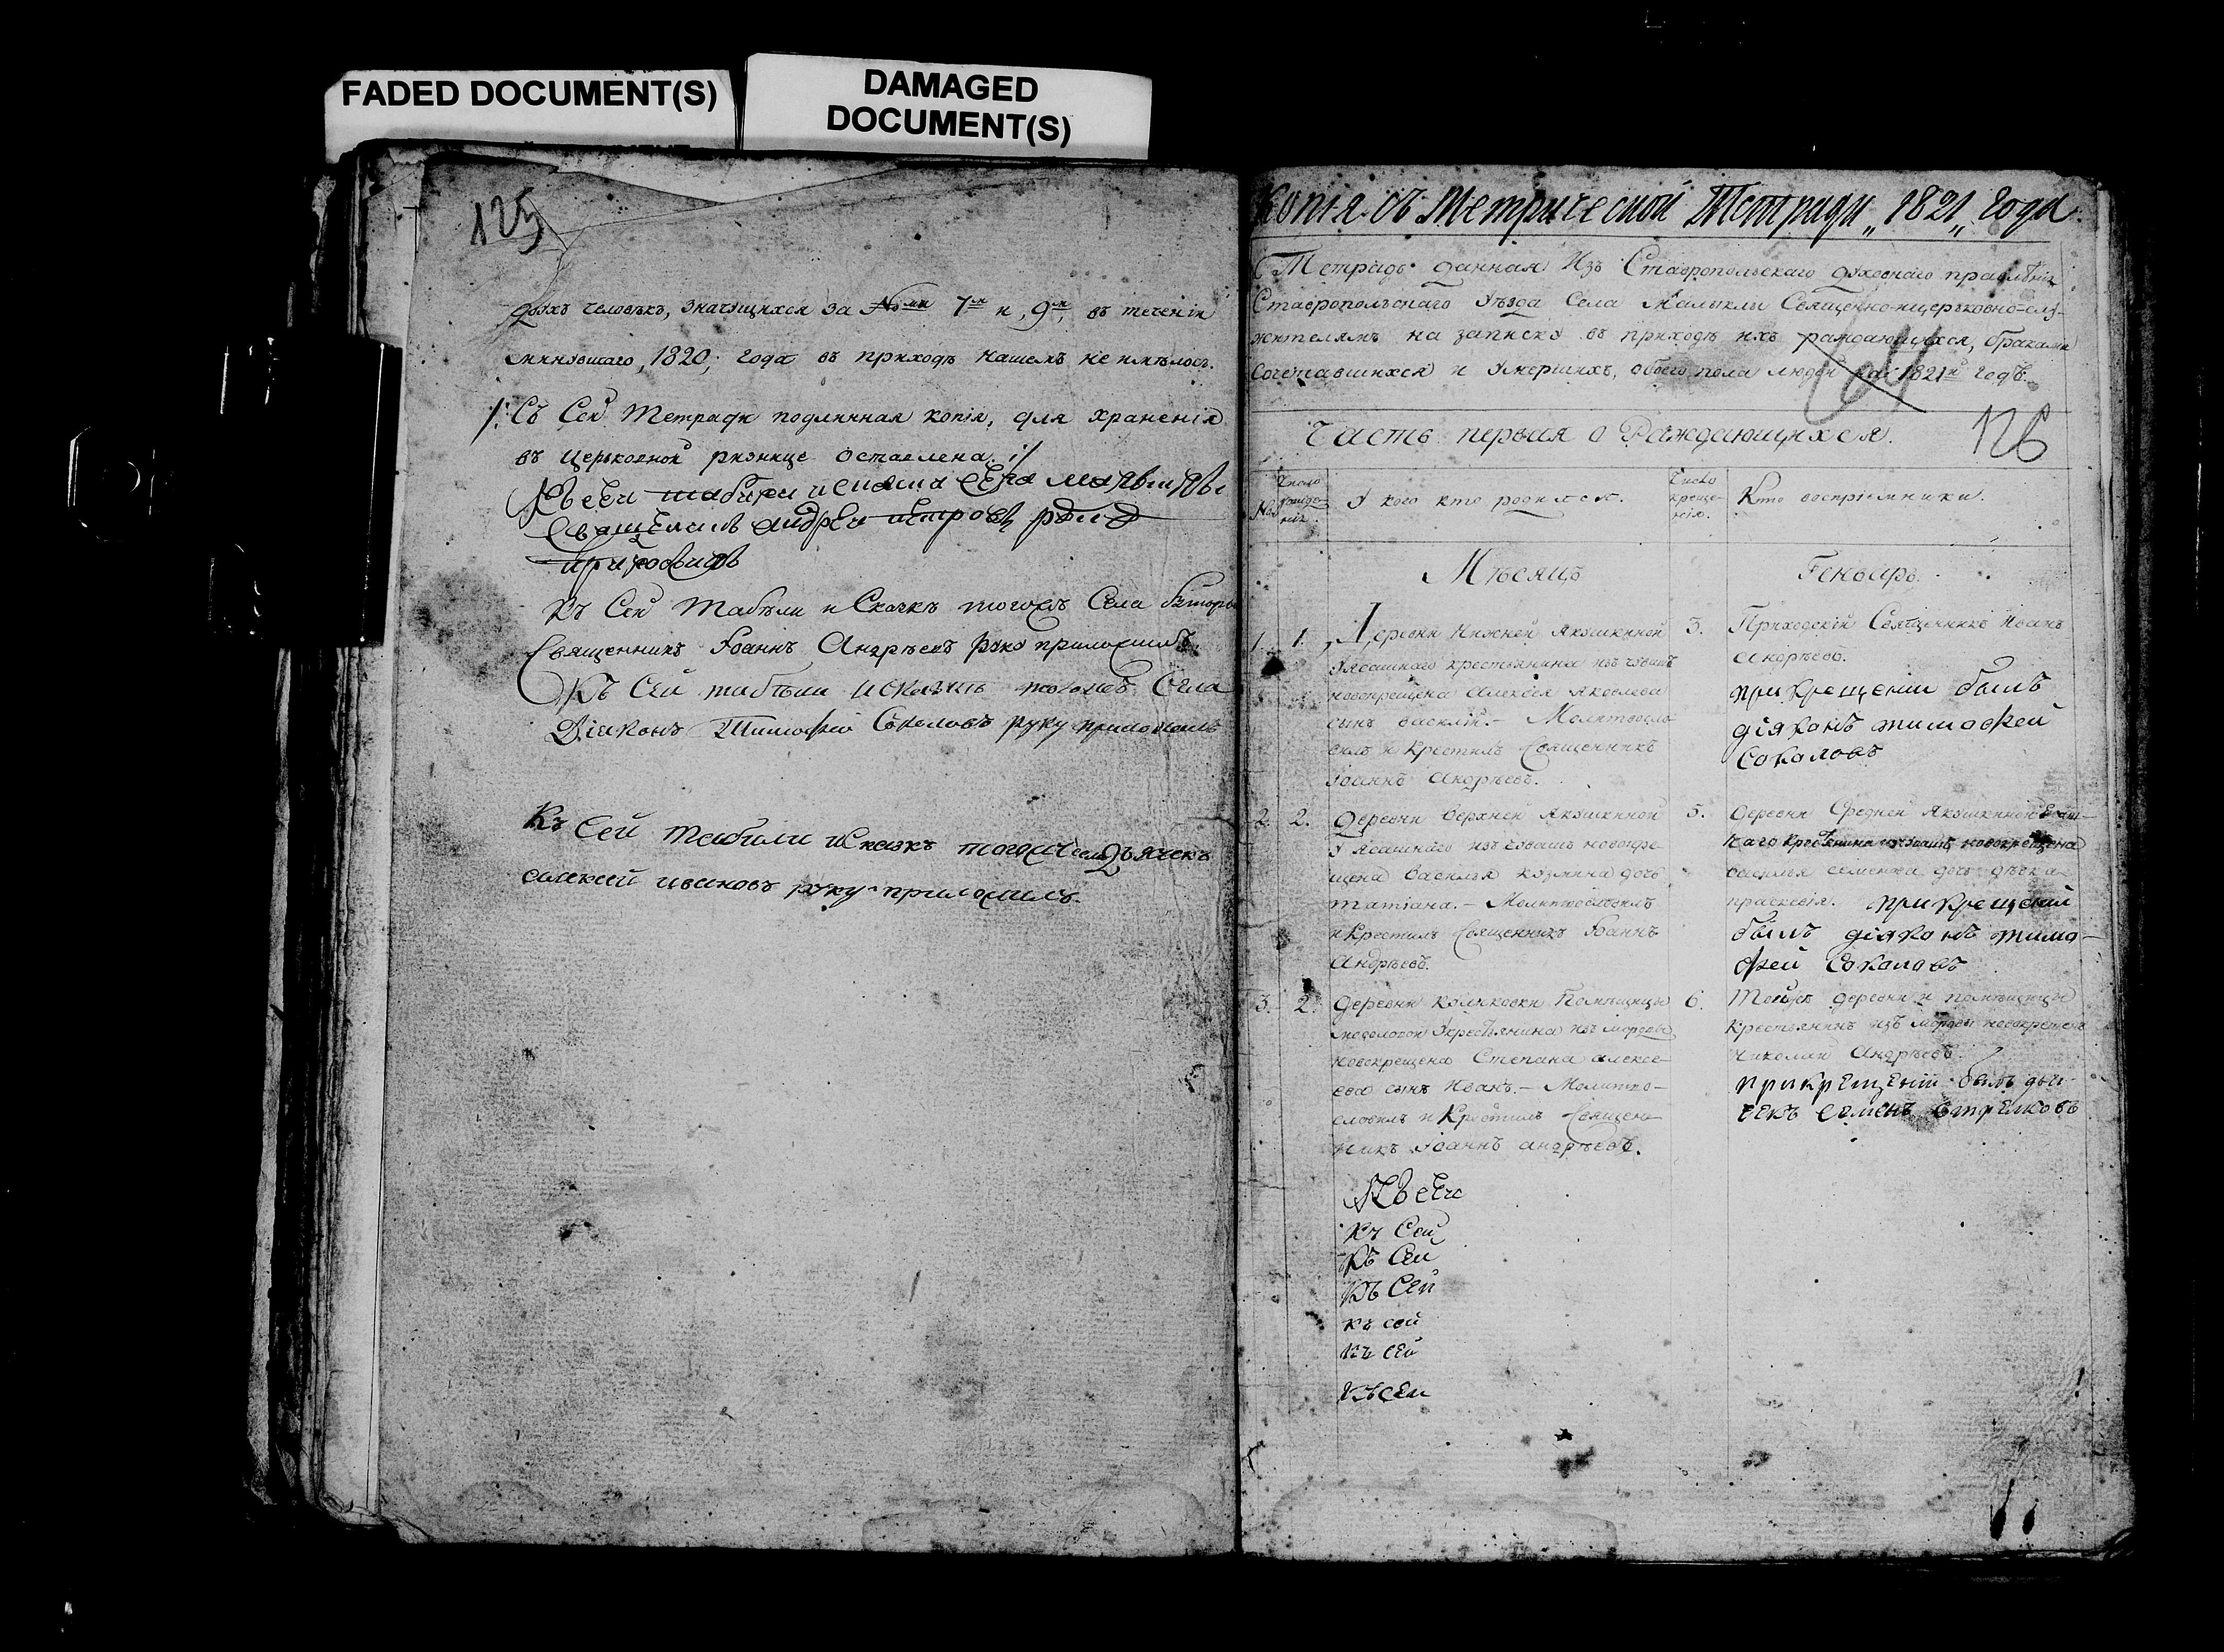 FADED DOCUMENT(S)
DAMAGED
DOCUMENT(S)
125
двухъ человѣкъ, значущихся за №ми 7м и, 9м, въ теченіи
минувшаго, 1820, года въ приходѣ нашемъ не имѣлось.
/: Съ Сей Тетради подлинная копія, для храненія
въ церьковной ризнице оставлена :/
Къ сей табели села
Священникъ андрей петровъ
приложилъ
Къ Сей Табѣли и Сказкѣ тогожъ Села вторы
Священникъ Іоаннъ Андрѣевъ руку приложилъ.
Къ Сей табѣли и сказкѣ тогожъ Села
Діаконъ Тимофей Соколовъ руку приложилъ
Къ Сей табили и Сказкѣ тогожъ села Дьячекъ
алексей ивановъ руку приложилъ.
Копія съ Метрической Тетради „1821„ года.
Тетрадь данная Изъ Ставропольскаго духовнаго правленія
Ставропольскаго Уѣзда Села Малыклы Священно-ицерьковно-слу-
жителямъ на записку въ приходѣ ихъ раждающихся, браками
Сочетавшихся и Умершихъ, обоего пола людей на 1821й годъ.
126
Часть первая о Раждающихся.
№
Число рожде-
нія.
У кого кто родился.
Число
креще-
нія.
Кто воспріемники.
Мѣсяцъ
Генварь.
1. 1. Деревни Нижней Якушкиной
Уясашнаго крестьянина изъ чувашъ
новокрещена Алексея Яковлева
сынъ василій. – Молитвосло-
вилъ и Крестилъ Священникъ
Іоаннъ Андрѣевъ.
3. Приходскій Священникъ Иванъ
андрѣевъ.
при крещении былъ
діяконъ тимофей
Соколовъ
2. 2. Деревни Верхней Якушкиной
У Ясашнаго изъ чувашъ новокре-
щена Василья козмина дочь
татіана. – Молитвословилъ
и Крестилъ Священникъ Іоаннъ
Андрѣевъ.
5. Деревни Средней Якушкиной Ясаш-
наго крестьянина изчувашъ новокрещена
василья семенова дочь дѣвка
праскевія. при крещении
былъ діяконъ тимо-
фей Соколовъ
3. 2. Деревни Помѣщицы
Укрестьянина изъ мордвы
новокрещена Степана алексе-
ева сынъ Иванъ. – Молитво-
словилъ и Крестилъ Священ-
никъ Іоаннъ андрѣевъ.
6. Тойже деревни и помѣщицы
Крестьянинъ изъ мордвы новокрещенъ
Николай Андрѣевъ.
при крещении былъ дья-
чекъ семенъ стрелковъ
Къ сей
Къ Сей
Къ Сей
Къ Сей
къ сей
къ сей
къ сей